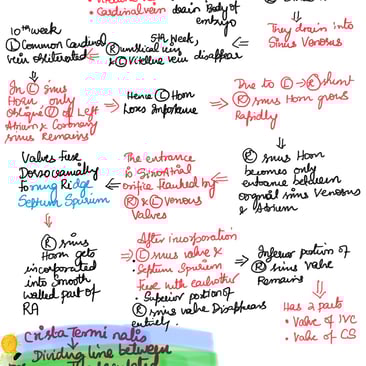 • Cardinal vein drain Body of embryo
They drain into
Sinus Venosus
5th Week,
(R) umbilical vein
& (L) Vitelline vein disappear
10th week
(L) Common Cardinal
vein obliterated
In (L) sinus
Horn only
Oblique (V) of Left
Atrium & Coronary
sinus Remains
Hence (L) Horn
Loses Importance
Due to (L) → (R) shunt
(R) sinus Horn grows
Rapidly
(R) sinus Horn
becomes only
entrance between
original sinus Venosus
& Atrium
The entrance
to Sinoatrial
orifice flanked by
(R) & (L) Venous
Valves
Valves Fuse
Dorsocranially
Forming Ridge
Septum Spurium
(R) sinus
Horn gets
incorporated
into Smooth
walled part of
RA
After incorporation
(L) sinus valve &
• Septum Spurium
Fuse with eachother
• Superior portion of
(R) sinus valve Disappears
entirely.
Inferior portion of
(R) sinus valve
Remains
Has 2 parts
• Valve of IVC
• Valve of CS
Crista Terminalis
→ Dividing line between